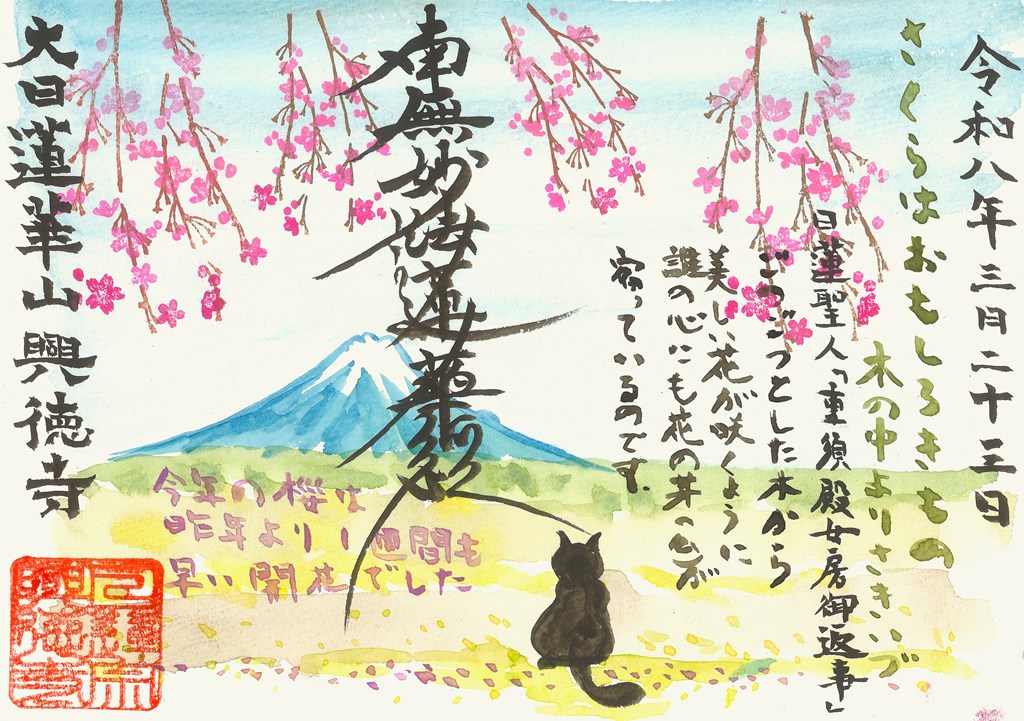 令和八年三月二十三日
さくらはおもしろきもの
木の中よりさきいづ
日蓮聖人「重須殿女房御返事」
ごつごつとした木から
美しい花が咲くように
誰の心にも花の芽が
宿っているのです。
南無妙法蓮華経
今年の桜は
昨年より1週間も
早い開花でした
大日蓮華山興徳寺